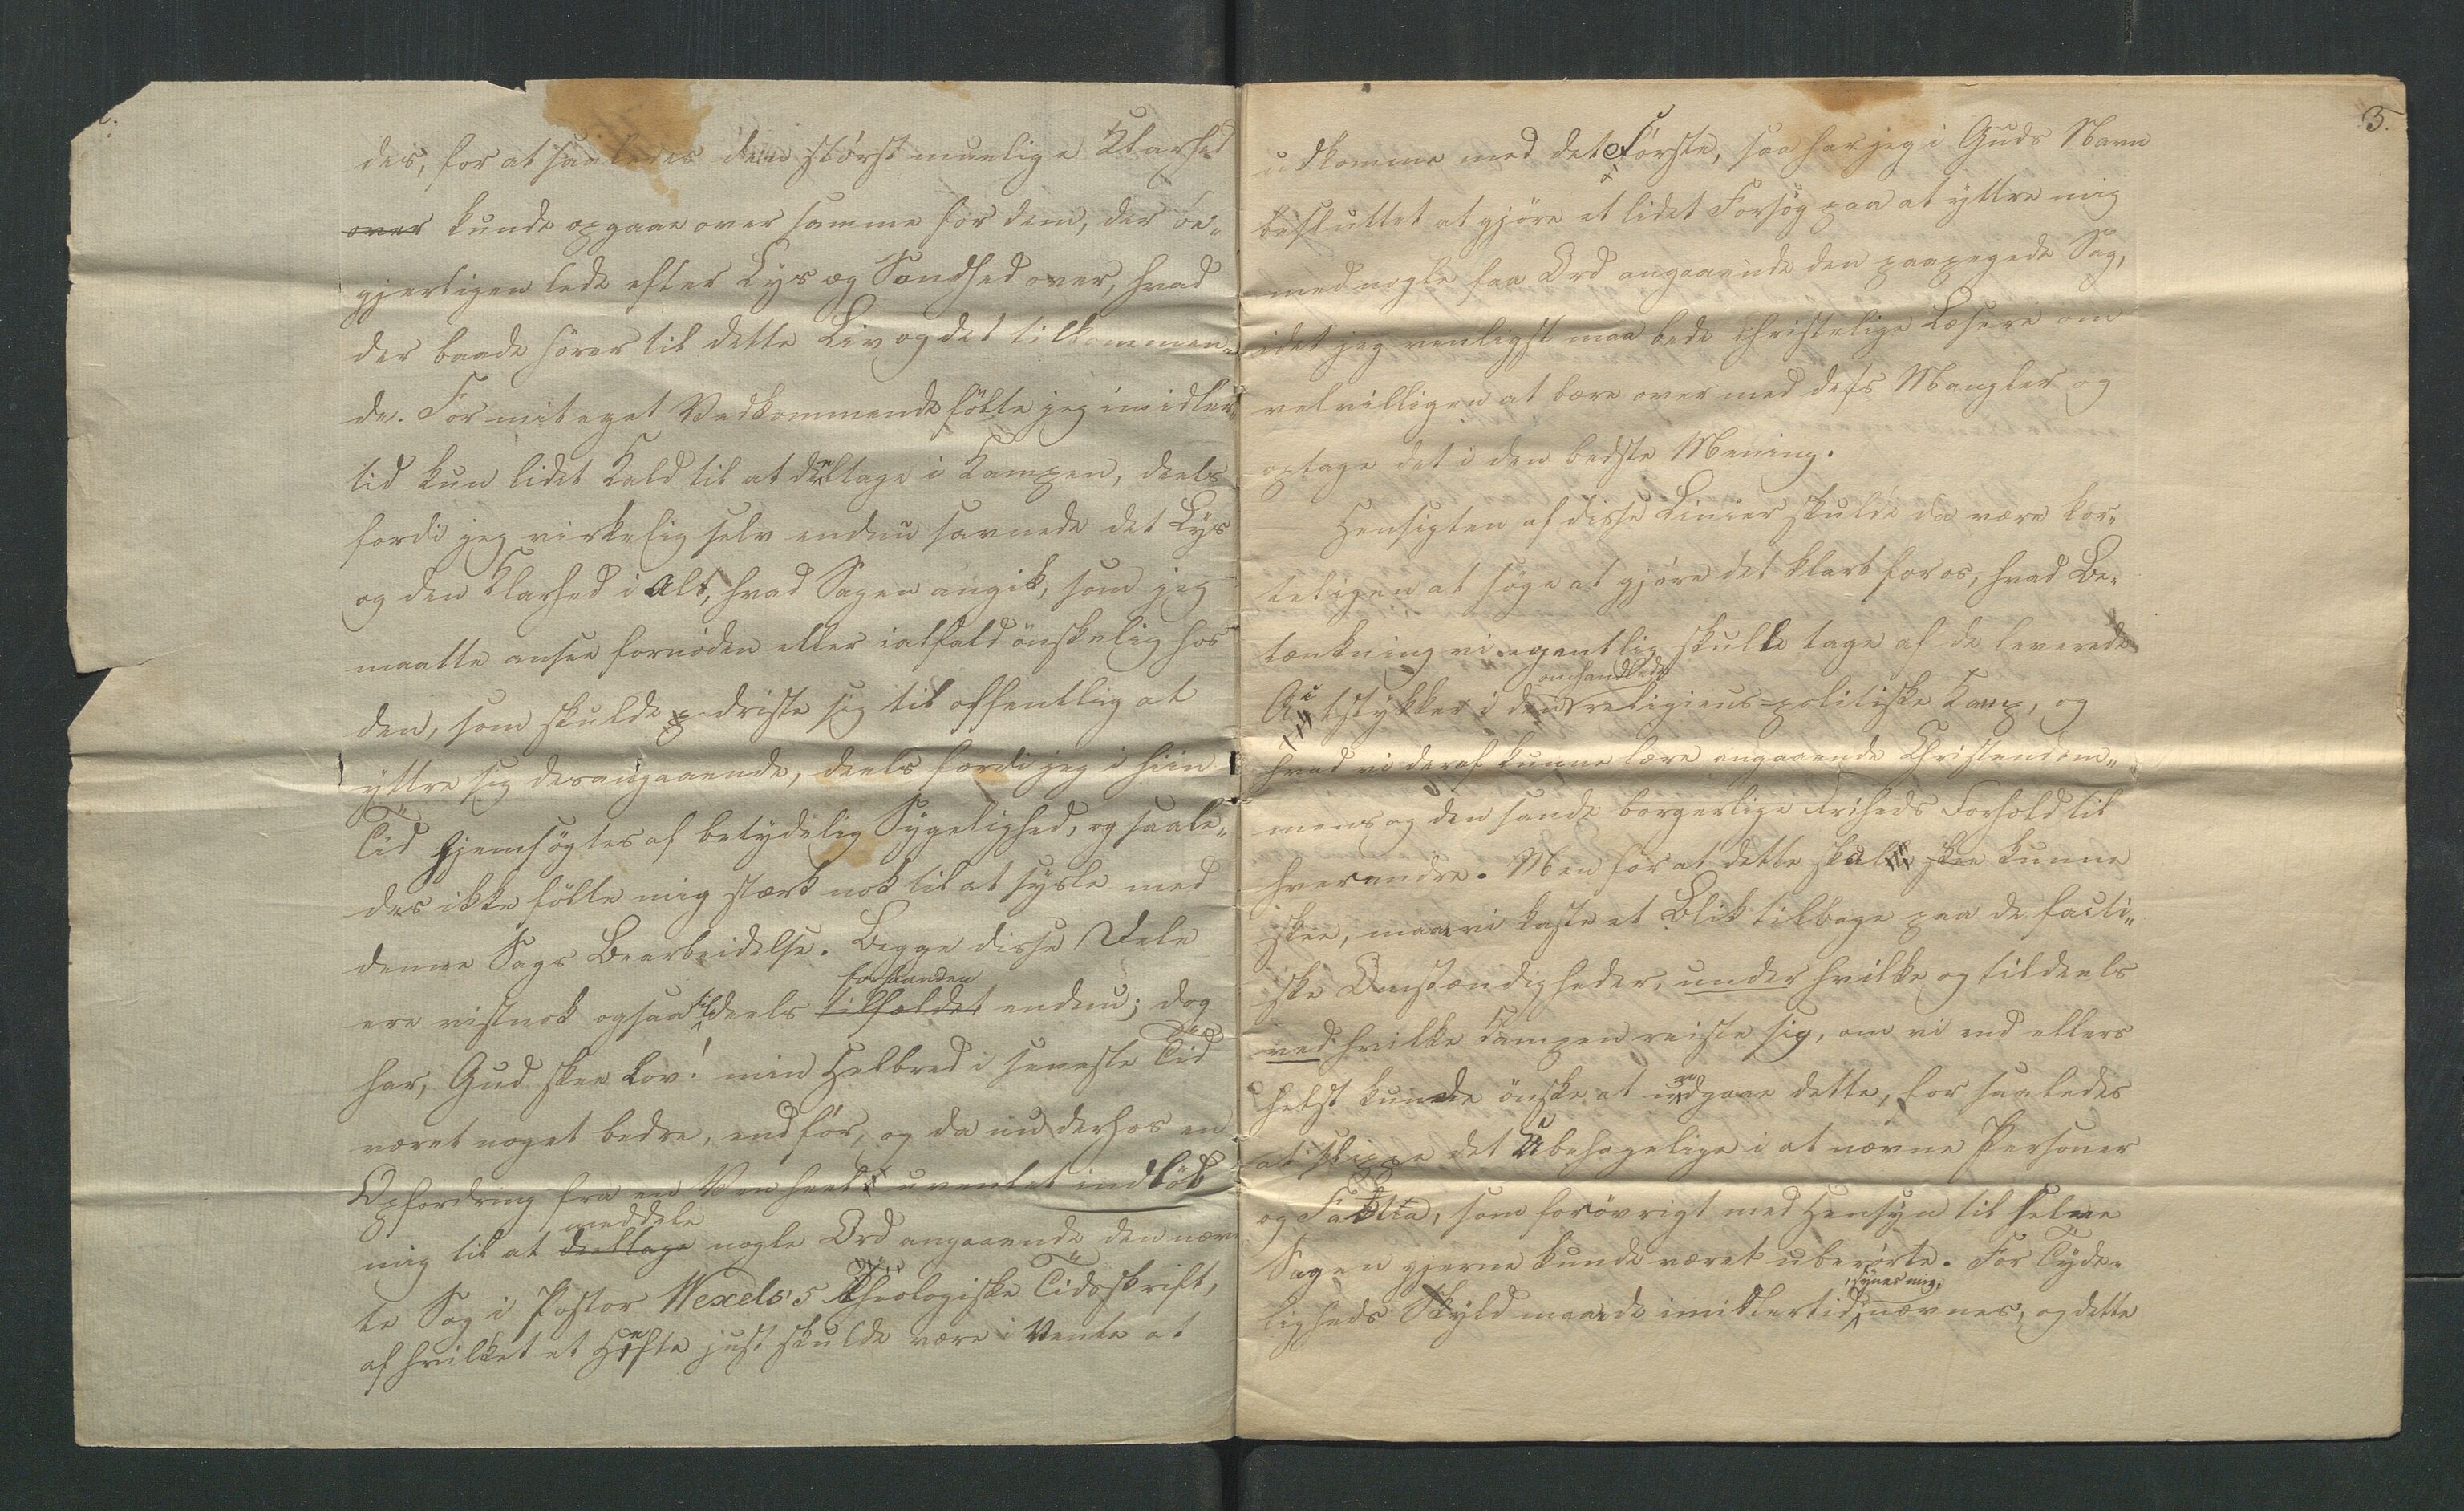 des, for at saaledes den störst muelige Klarhed
over kunde opgaae over samme for dem, der be-
gjerligen lede efter Lys og Sandhed over, hvad
der baade hörer til dette Liv og det tilkommen-
de. For mit eget Vedkommende fölte jeg imidler-
tid kun lidet Kald til at deeltage i Kampen, deels
fordi jeg virkelig selv endnu savnede det Lys
og den Klarhed i Alt, hvad Sagen angik, som jeg
maatte ansee fornöden eller ialfald önskelig hos
den, som skulde driste sig til offentlig at
yttre sig desangaaende, deels fordi jeg i hiin
Tid hjemsögtes af betydelig Sygelighed, og saale-
des ikke fölte mig stærk nok til at sysle med
denne Sags Bearbeidelse. Begge disse Dele
forhaanden
ere vistnok ogsaa tildeels tilfældet endnu; dog
har, Gud skee Lov! min Helbred i seneste Tid
været noget bedre, end för, og da nu derhos en
Opfordring fra en Ven heelt uventet indlöb
meddele
mig til at deeltage nogle Ord angaaende den nævn
te Sag i Pastor Wexels's theologiske Tidsskrift,
af hvilket et Hefte just skulde være i Vente at
3.
udkomme med det Förste, saa har jeg i Guds Navn
besluttet at gjöre et lidet Forsög paa at yttre mig
med nogle faa Ord angaaende den paapegede Sag,
idet jeg venligst maa bede christelige Læsere om
velvilligen at bære over med dets Mangler og
optage det i den bedste Mening.
Hensigten af disse Linier skulde da være kor-
teligen at söge at gjöre det klart for os, hvad Be-
tænkning vi egentlig skulle tage af de leverede
omhandlede
Actstykker i den religieus-politiske Kamp, og
hvad vi deraf kunne lære angaaende Christendom-
mens og den sande borgerlige Friheds Forhold til
hverandre. Men for at dette skal skee kunne
skee, maae vi kaste et Blik tilbage paa de facti-
ske Omstændigheder, under hvilke og tildeels
ved hvilke Kampen reiste sig, om vi end ellers
helst kunde önske at undgaae dette, for saaledes
at slippe det Ubehagelige i at nævne Personer
og Facta, som forövrigt med Hensyn til selve
Sagen gjerne kunde været uberörte. For Tyde-
synes mig,
ligheds Skyld maae de imidlertid nævnes, og dette